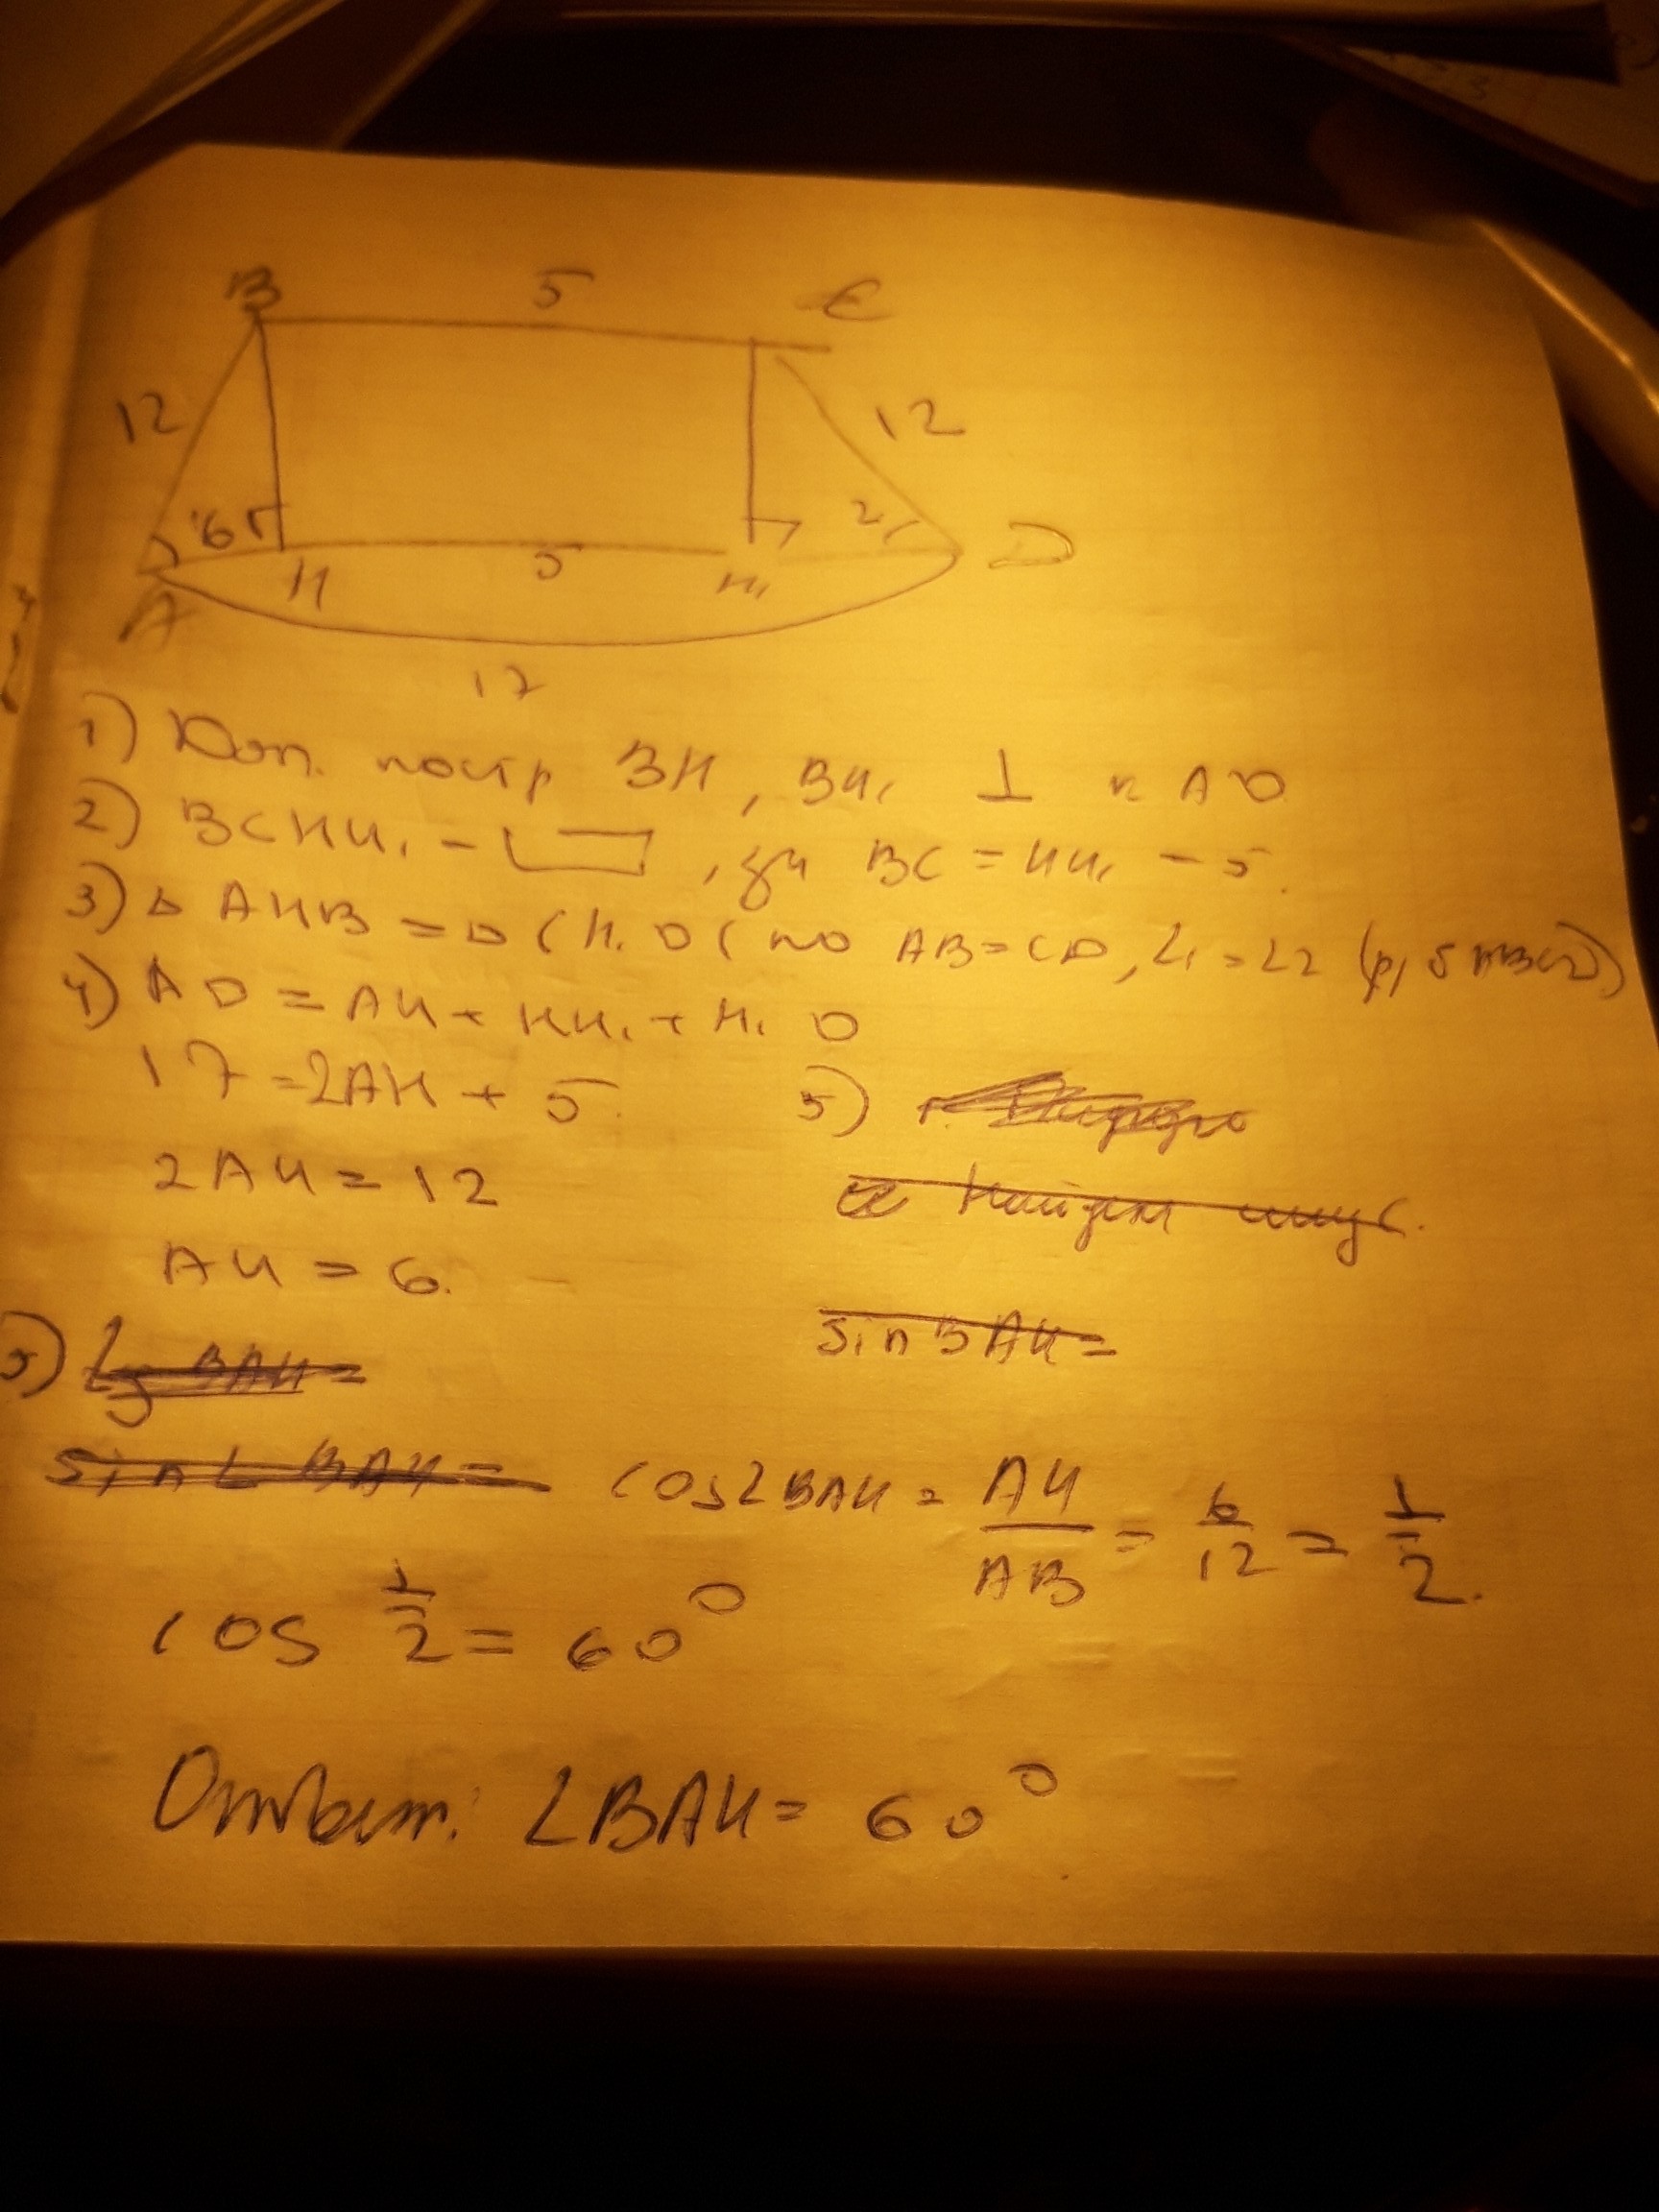 B 5 C
12 12
6 2
A H 5 H₁ D
17
1) Доп. постр BH, BH₁ ⊥ к AD
2) BCHH₁ - ▭, BC = HH₁ - 5.
3) △ AHB = △ CH₁D (по AB = CD, ∠1 = ∠2 (р/б ABCD)
4) AD = AH + HH₁ + H₁D
17 = 2AH + 5.
2AH = 12
AH = 6.
5)
Найдем
sin BAH =
5) BAH =
sin ∠ BAH = cos∠BAH = AH/AB = 6/12 = 1/2.
cos 1/2 = 60°
Ответ: ∠BAH = 60°